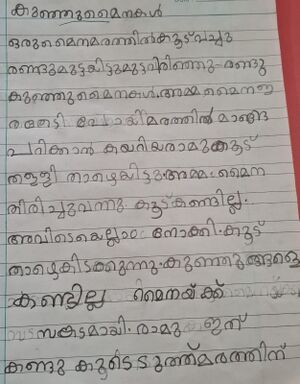 കുഞ്ഞുമൈനകൾ
ഒരു മൈന മരത്തിൽ കൂട് വച്ചു
രണ്ടുമുട്ടയിട്ടു മുട്ടവിരിഞ്ഞു രണ്ടു
കുഞ്ഞു മൈനകൾ. അമ്മ മൈന ഇ
തേടി പോയി മരത്തിൽ മാങ്ങ
പറിക്കാൻ കയറിയ രാമു കൂട്
തള്ളി താഴെയിട്ടു. അമ്മ മൈന
തിരിച്ചുവന്നു. കൂട് കണ്ടില്ല.
അവിടെയെല്ലാം നോക്കി. കൂട്
താഴെകിടക്കുന്നു. കുഞ്ഞുങ്ങളെ
കണ്ടില്ല മൈനയ്ക്ക്
സങ്കടമായി. രാമു ഇത്
കണ്ടു കൂടെടുത്ത് മരത്തിന്